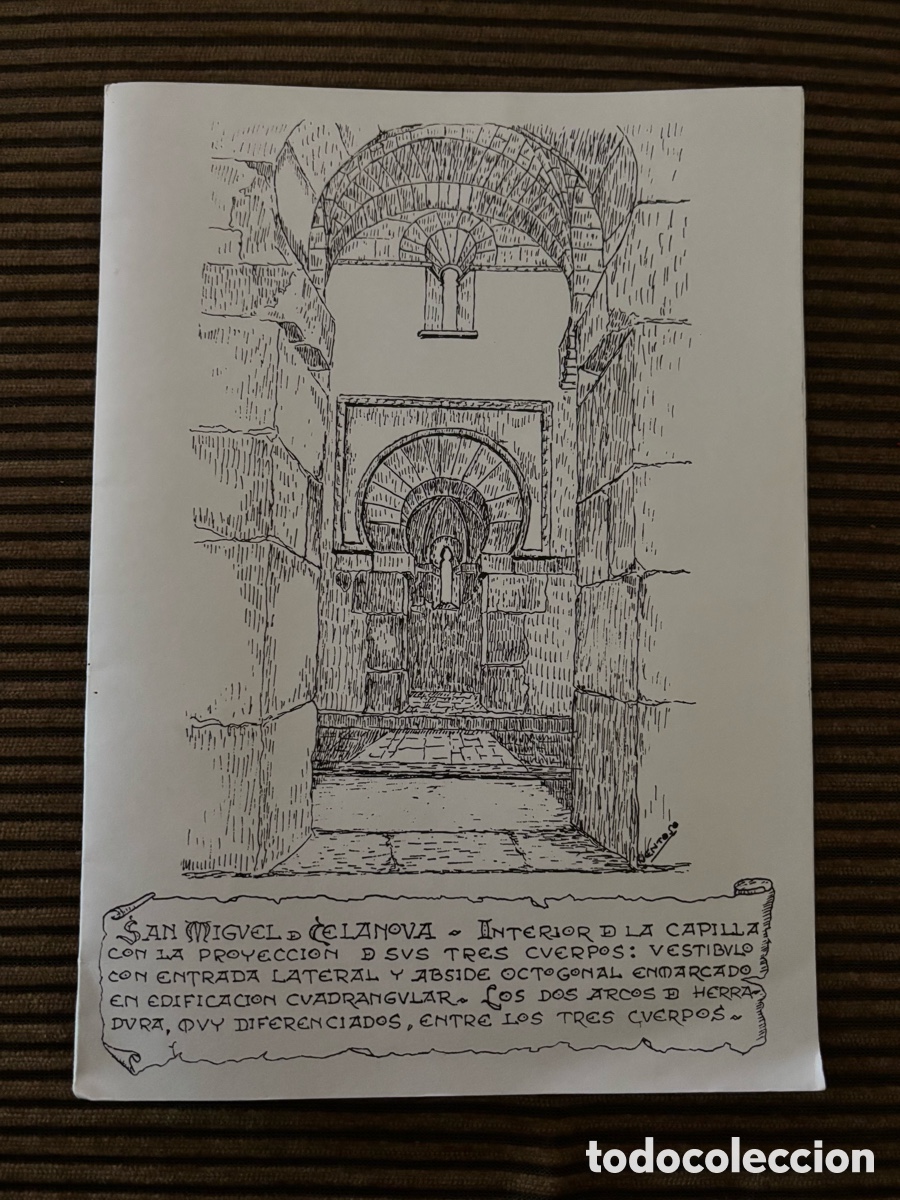 VENTOSO
SAN MIGVEL D CELANOVA ~ INTERIOR D LA CAPILLA
CON LA PROYECCION D SVS TRES CVERPOS: VESTIBVLO
CON ENTRADA LATERAL Y ABSIDE OCTOGONAL ENMARCADO
EN EDIFICACION CVADRANGVLAR~ LOS DOS ARCOS D HERRA-
DVRA, MVY DIFERENCIADOS, ENTRE LOS TRES CVERPOS~
todocoleccion